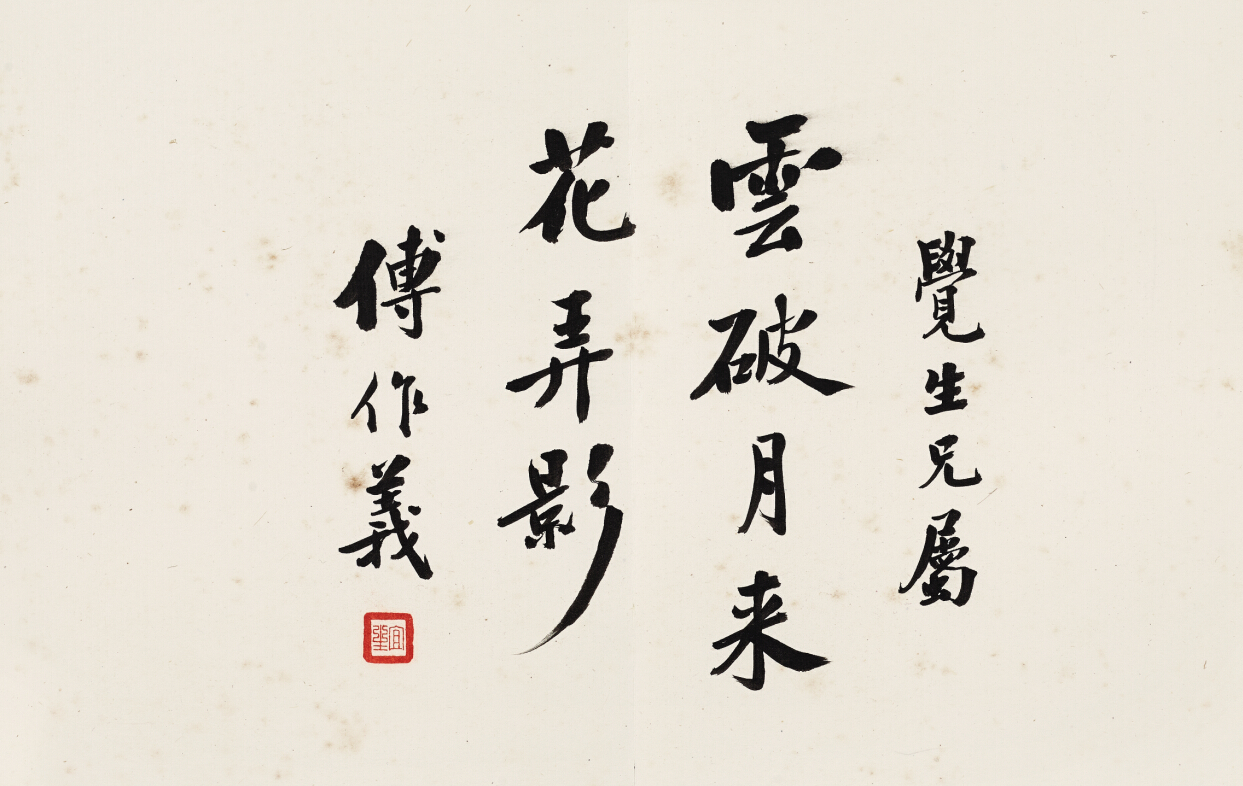 覺生兄屬
雲破月来
花弄影
傅作義